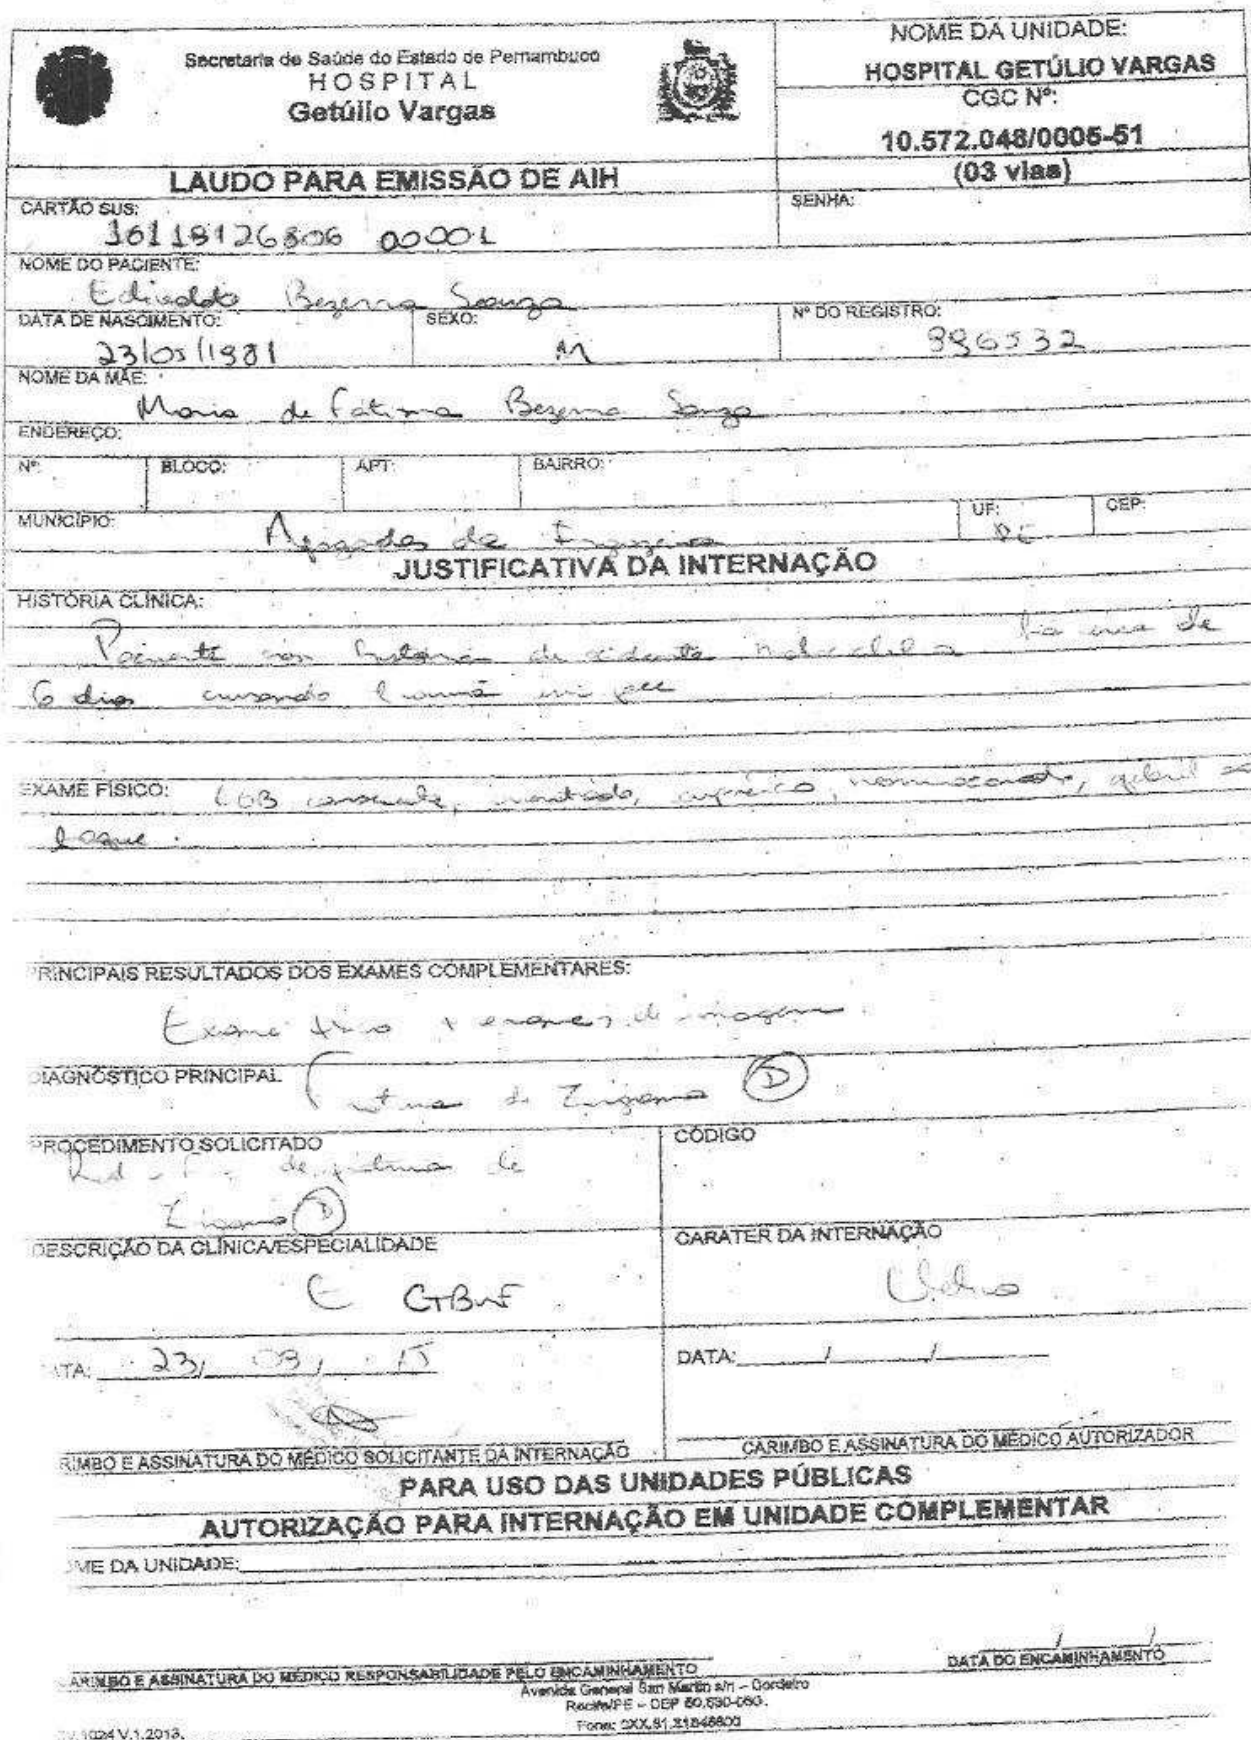 Secretaria de Saúde do Estado de Pernambuco
HOSPITAL
Getúlio Vargas
NOME DA UNIDADE:
HOSPITAL GETÚLIO VARGAS
CGC Nº:
10.572.048/0005-51
(03 vias)
LAUDO PARA EMISSÃO DE AIH
CARTÃO SUS:
SENHA:
16118126806 00001
NOME DO PACIENTE:
Bezerra Souza
DATA DE NASCIMENTO:
SEXO:
Nº DO REGISTRO:
23/05/1981
M
996532
NOME DA MÃE:
Maria de Fátima Bezerra Souza
ENDEREÇO:
Nº:
BLOCO:
APT:
BAIRRO:
MUNICÍPIO:
Afogados da Ingazeira
UF:
PE
CEP:
JUSTIFICATIVA DA INTERNAÇÃO
HISTÓRIA CLÍNICA:
Paciente com história de acidente há cerca de
6 dias cursando trauma em face
EXAME FÍSICO: EGB consciente, orientado, eupneico, normocorado,
PRINCIPAIS RESULTADOS DOS EXAMES COMPLEMENTARES:
Exame físico + exames de imagem
DIAGNÓSTICO PRINCIPAL
Fratura de Zigoma D
PROCEDIMENTO SOLICITADO
CÓDIGO
de fratura de
Zigoma D
DESCRIÇÃO DA CLÍNICA/ESPECIALIDADE
CARATER DA INTERNAÇÃO
CTBMF
ATA: 23, 03, 15
DATA: / /
RIMBO E ASSINATURA DO MÉDICO SOLICITANTE DA INTERNAÇÃO
CARIMBO E ASSINATURA DO MÉDICO AUTORIZADOR
PARA USO DAS UNIDADES PÚBLICAS
AUTORIZAÇÃO PARA INTERNAÇÃO EM UNIDADE COMPLEMENTAR
OME DA UNIDADE:
/ /
ARIMBO E ASSINATURA DO MÉDICO RESPONSABILIDADE PELO ENCAMINHAMENTO
DATA DO ENCAMINHAMENTO
Avenida General San Martin s/n – Cordeiro
Recife/PE – CEP 50.630-060.
Fone: 0XX.81.31845600
1024 V.1.2013.